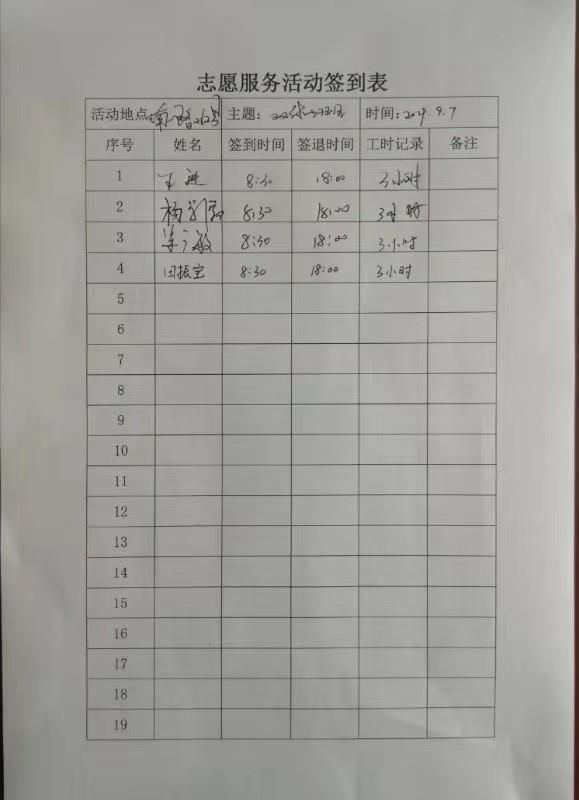 志愿服务活动签到表
活动地点: 主题: 时间: 9.7
序号 姓名 签到时间 签退时间 工时记录 备注
1 8:30 18:00 3小时
2 8:30 18:00 3小时
3 8:30 18:00 3小时
4 田振宝 8:30 18:00 3小时
5
6
7
8
9
10
11
12
13
14
15
16
17
18
19